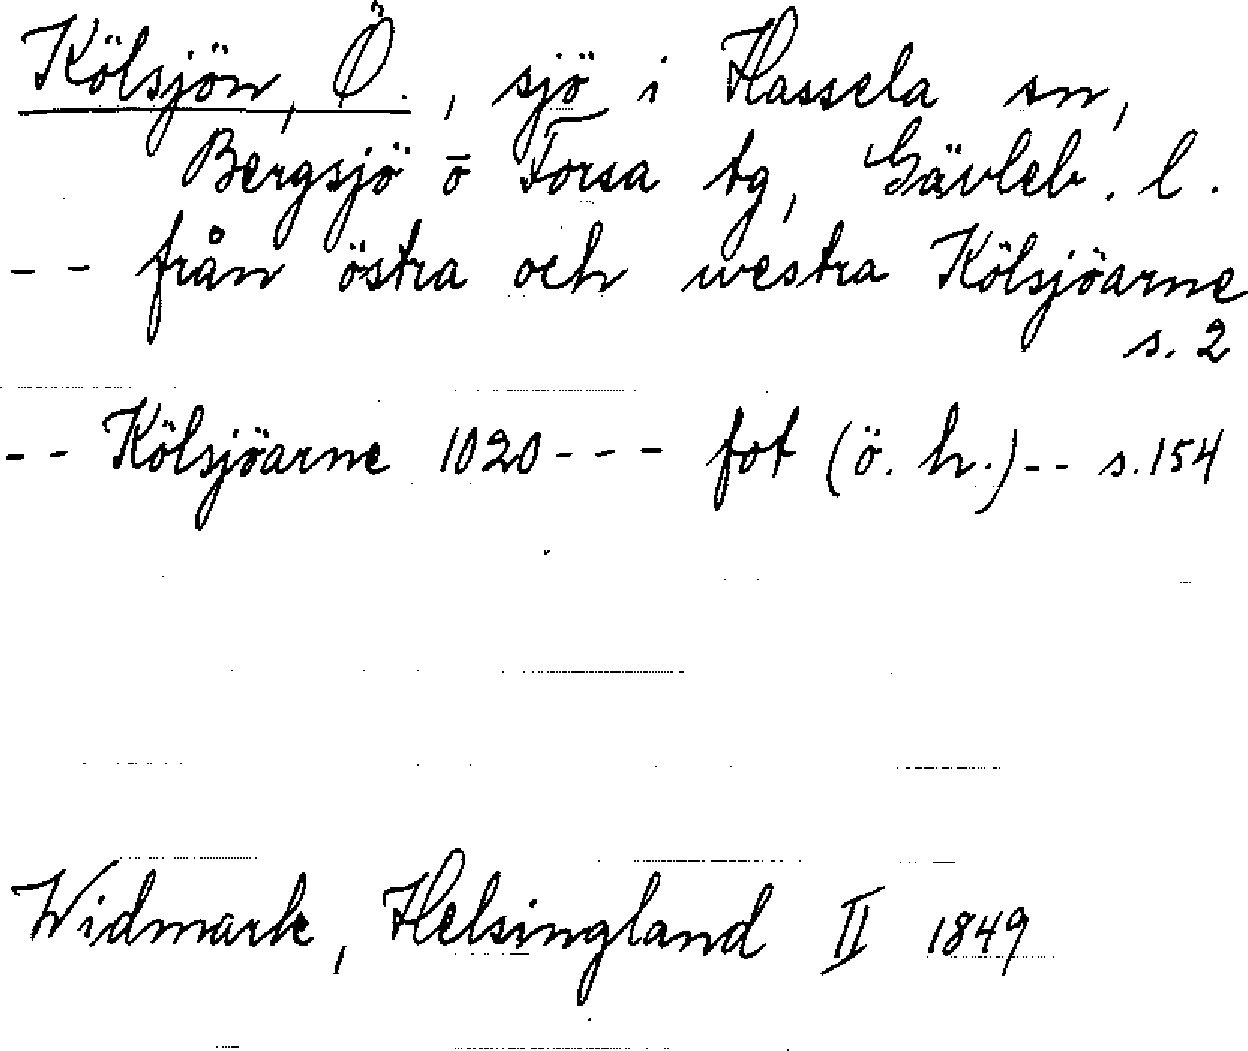 Kölsjön, Ö., sjö i Hassela sn,
Bergsjö o Forsa tg, Gävleb. l.
-- från östra och westra Kölsjöarne
s. 2
-- Kölsjöarne 1020--- fot (ö. h.)-- s.154
Widmark, Helsingland II 1849